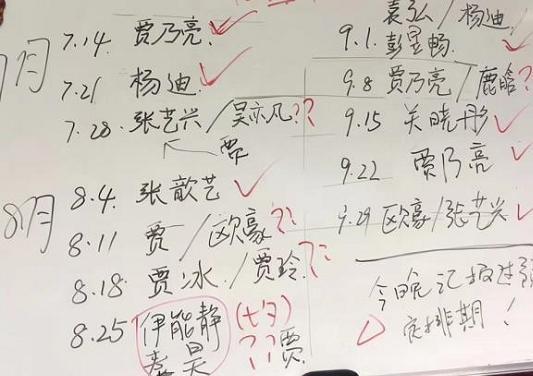 7月
7.14. 贾乃亮.
7.21 杨迪
7.28. 张艺兴/吴亦凡??
票
8月
8.4. 张歆艺
8.11 贾/欧豪??
8.18. 贾冰/贾玲??
8.25 伊能静(七夕)
秦昊??票
袁弘/杨迪
9.1. 彭昱畅.
9.8 贾乃亮/鹿晗?
9.15 关晓彤
9.22 贾乃亮
9.29 欧豪/张艺兴
今晚汇报过
定排期!